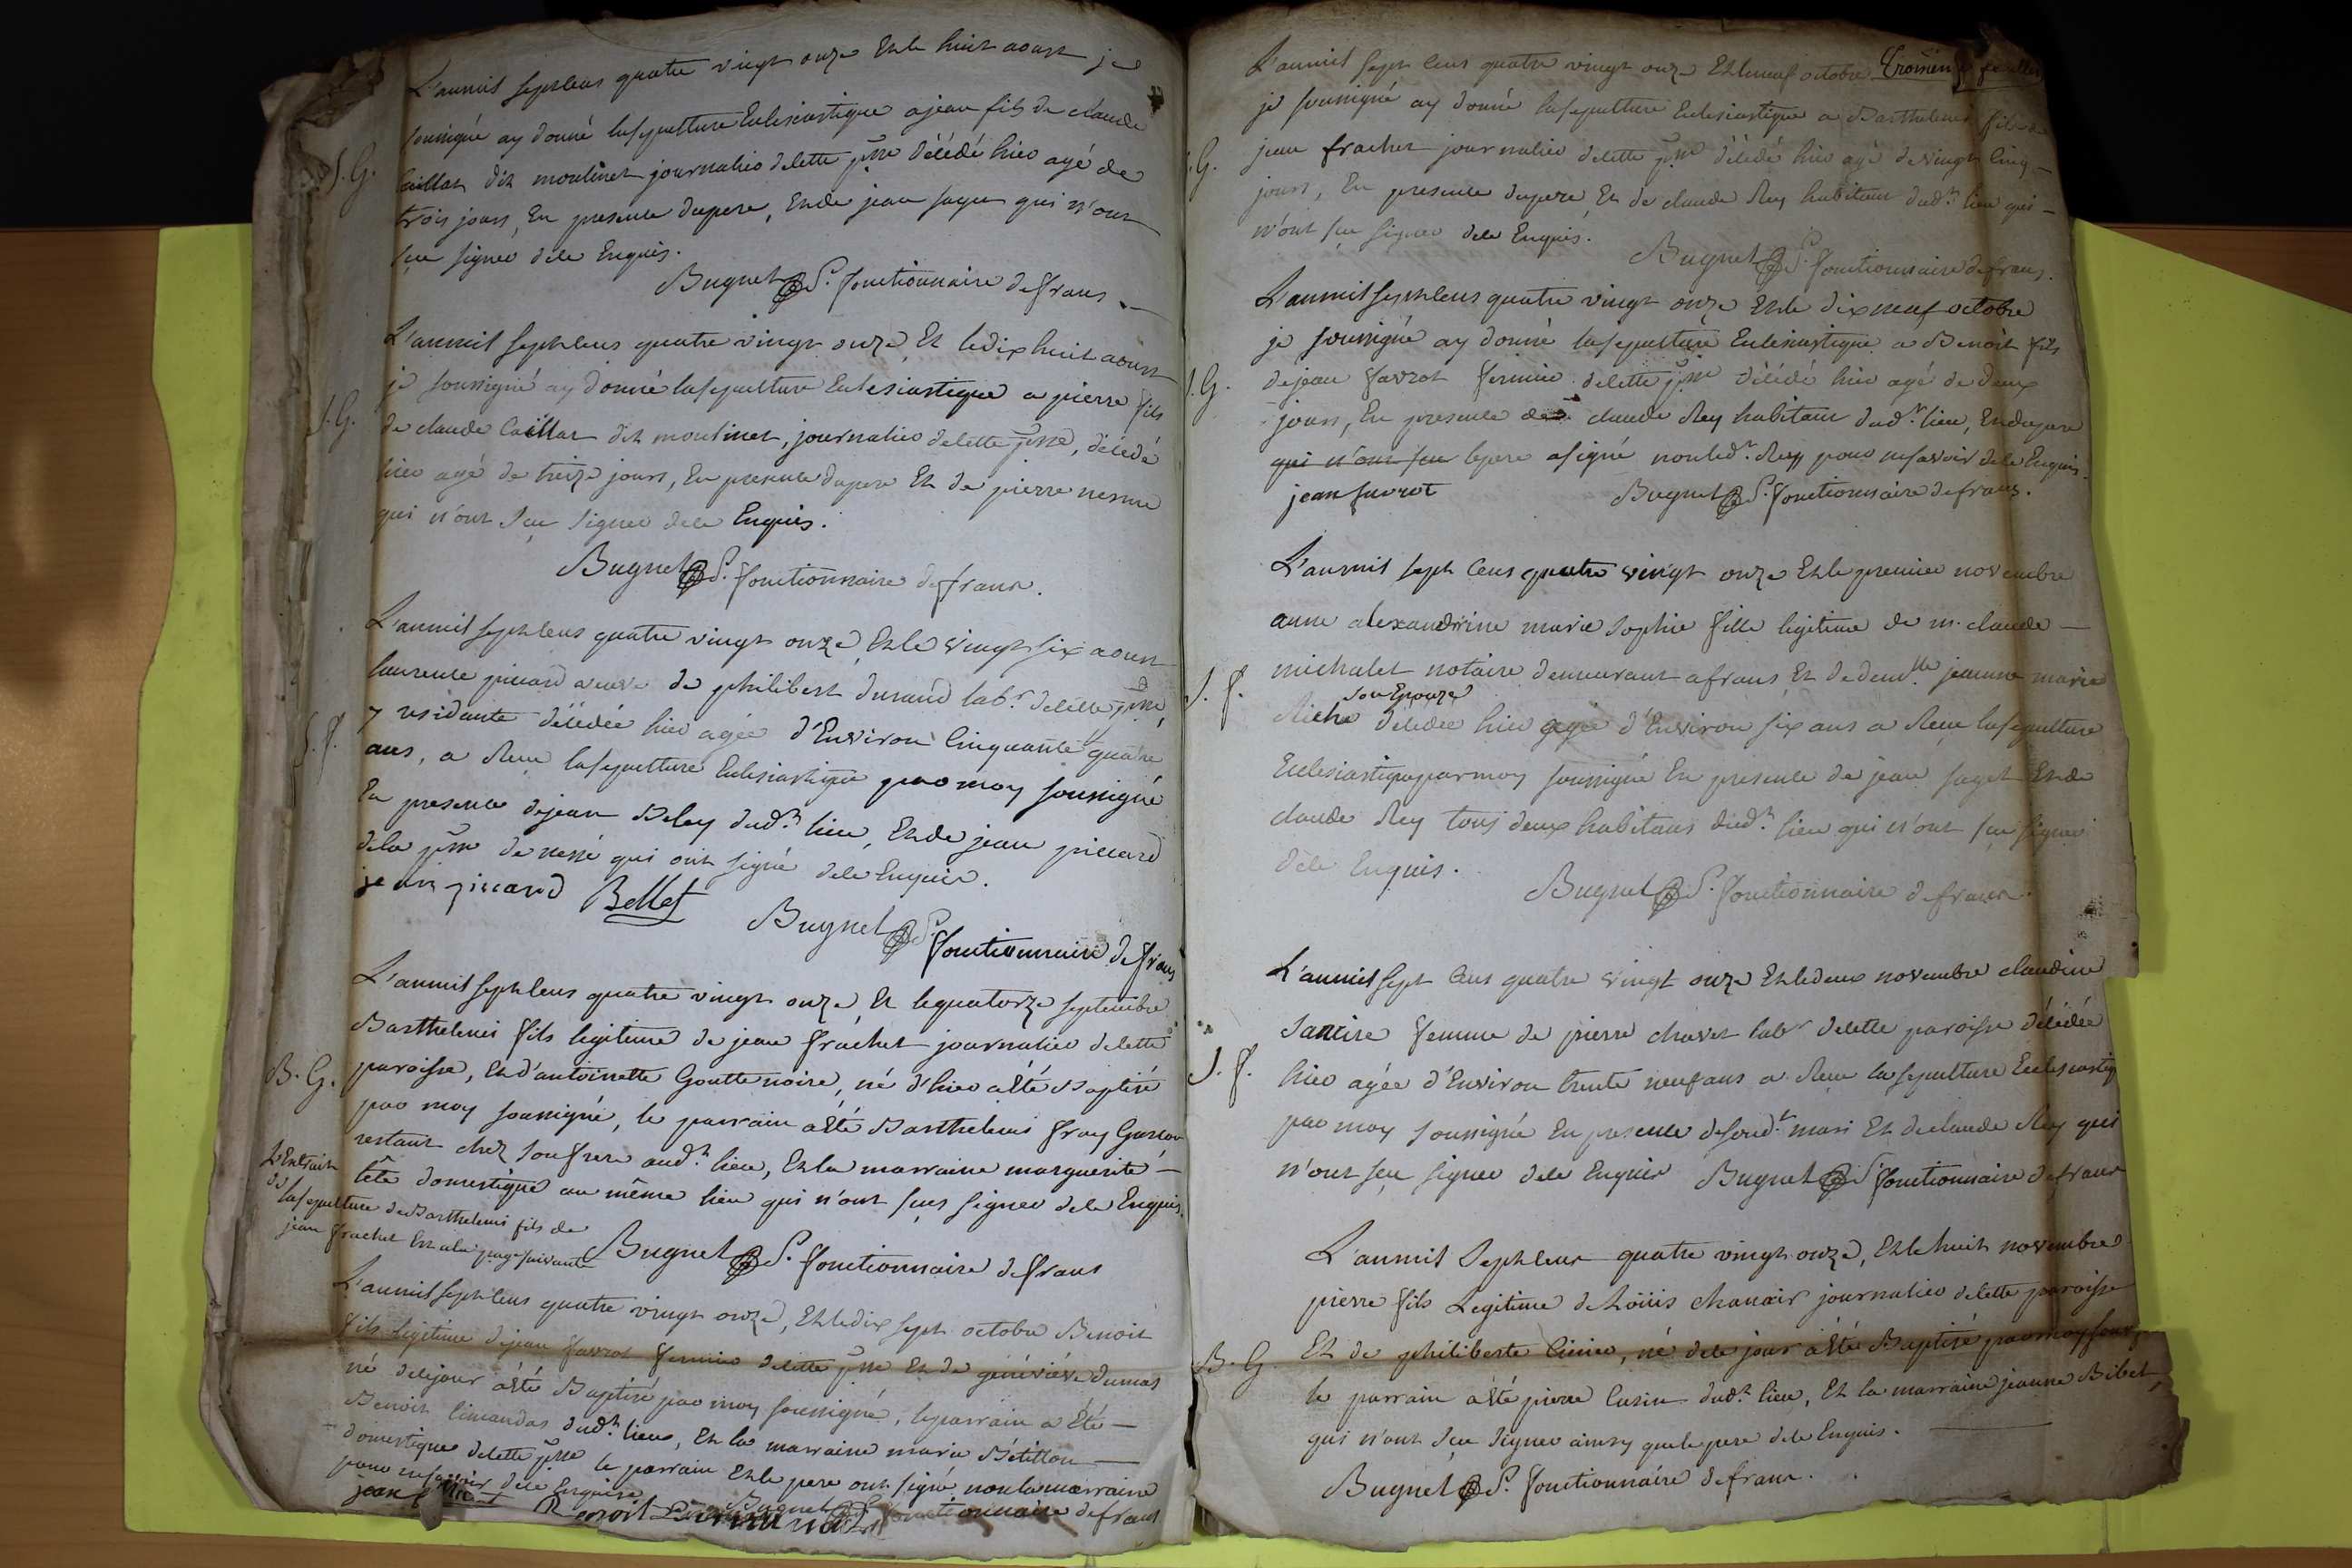 L'anmil sept cens quatre vingt onze Et le huit aoust je
soussigné ay donné la sepulture Eclesiastique a jean fils de claude
S. G.
Caillat dit moulinet journalier de cette psse décédé hier agé de
trois jours, En presence du pere, Et de jean saget qui n'ont
sçu signer de ce Enquis.
Bugnet P. fonctionnaire de frans
L'anmil sept cens quatre vingt onze, Et le dix huit aoust
je soussigné ay donné la sepulture Eclesiastique a pierre fils
S. G.
de claude Caillat dit moulinet, journalier de cette psse, décédé
hier agé de treize jours, En presence du pere Et de pierre nesme
qui n'ont sçu signer de ce Enquis.
Bugnet P. fonctionnaire de frans.
L'anmil sept cens quatre vingt onze, Et le vingt six aoust
laurence picard veuve de philibert durand labr. de cette psse,
S. f.
y residante décédée hier agée d'Environ Cinquante quatre
ans, a Reçu la sepulture Eclesiastique par moy soussigné
En presence de jean Beley dudt. lieu, Et de jean piccard
de la psse de qui ont signé de ce Enquis.
jean picard Bellet
Bugnet P. fonctionnaire de frans
L'anmil sept cens quatre vingt onze, Et le quatorze septembre
Barthelemi fils legitime de jean frachet journalier de cette
B. G.
paroisse, Et d'antoinette Goutte noire, né d'hier a été Baptisé
par moy soussigné, le parrain a été Barthelemi fray Garçon
restant chez son frere audt. lieu, Et la marraine marguerite
tête domestique au même lieu qui n'ont sçus signer de ce Enquis.
L'Extrait
de
la sepulture de Barthelemi fils de
jean frachet Est a la page suivante
Bugnet P. fonctionnaire de frans
L'anmil sept cens quatre vingt onze, Et le dix sept octobre Benoit
fils legitime de jean favrot fermier de cette psse Et de géneviéve dumas
né de ce jour a été Baptisé par moy soussigné, le parrain a Eté
Benoit limandas dudt. lieu, Et la marraine marie Bétillon
domestique de cette psse le parrain Et le pere ont signé non la marraine
pour ne savoir de ce Enquise
jean Benoit Bugnet P. fonctionnaire de frans
L'anmil sept cens quatre vingt onze Et le neuf octobre Troisième feuillet
je soussigné ay donné la sepulture Eclesiastique a Barthelemi fils de
S. G.
jean frachet journalier de cette psse décédé hier agé de vingt Cinq
jours, En presence du pere, Et de claude Rey habitant dudt. lieu qui
n'ont sçu signer de ce Enquis.
Bugnet P. fonctionnaire de frans.
L'anmil sept cens quatre vingt onze Et le dix neuf octobre
je soussigné ay donné la sepulture Eclesiastique a Benoit fils
S. G.
de jean favrot fermier de cette psse décédé hier agé de deux
jours, En presence de claude Rey habitant dudt. lieu, Et du pere
qui n'ont sçu le pere a signé non led. Rey pour ne savoir de ce Enquis.
jean favrot Bugnet P. fonctionnaire de frans.
L'anmil sept Cens quatre vingt onze Et le premier novembre
anne alexandrine marie sophie fille legitime de m. claude
michalet notaire demeurant a frans Et de demlle jeanne marie
S. f.
son Epouze
Riche décédée hier agée d'Environ six ans a Reçu la sepulture
Ecclesiastique par moy soussigné En presence de jean saget Et de
claude Rey tous deux habitans dudt. lieu qui n'ont sçu signer
de ce Enquis.
Bugnet P. fonctionnaire de frans.
L'anmil sept Cens quatre vingt onze Et le deux novembre claudine
femme de pierre chavet labr de cette paroisse décédée
S. f.
hier agée d'Environ trente neuf ans a Reçu la sepulture Ecclesiastiq
par moy soussigné En presence de sondt. mari Et de claude Rey qui
n'ont sçu signer de ce Enquis Bugnet P. fonctionnaire de frans
L'anmil sept cens quatre vingt onze, Et le huit novembre
pierre fils Legitime de Loüis journalier de cette paroisse
B. G.
Et de philiberte né de ce jour a été Baptisé par moy souss,
le parrain a été pierre dudt. lieu, Et la marraine jeanne Bibet,
qui n'ont sçu signer ainsy que le pere de ce Enquis.
Bugnet P. fonctionnaire de frans.